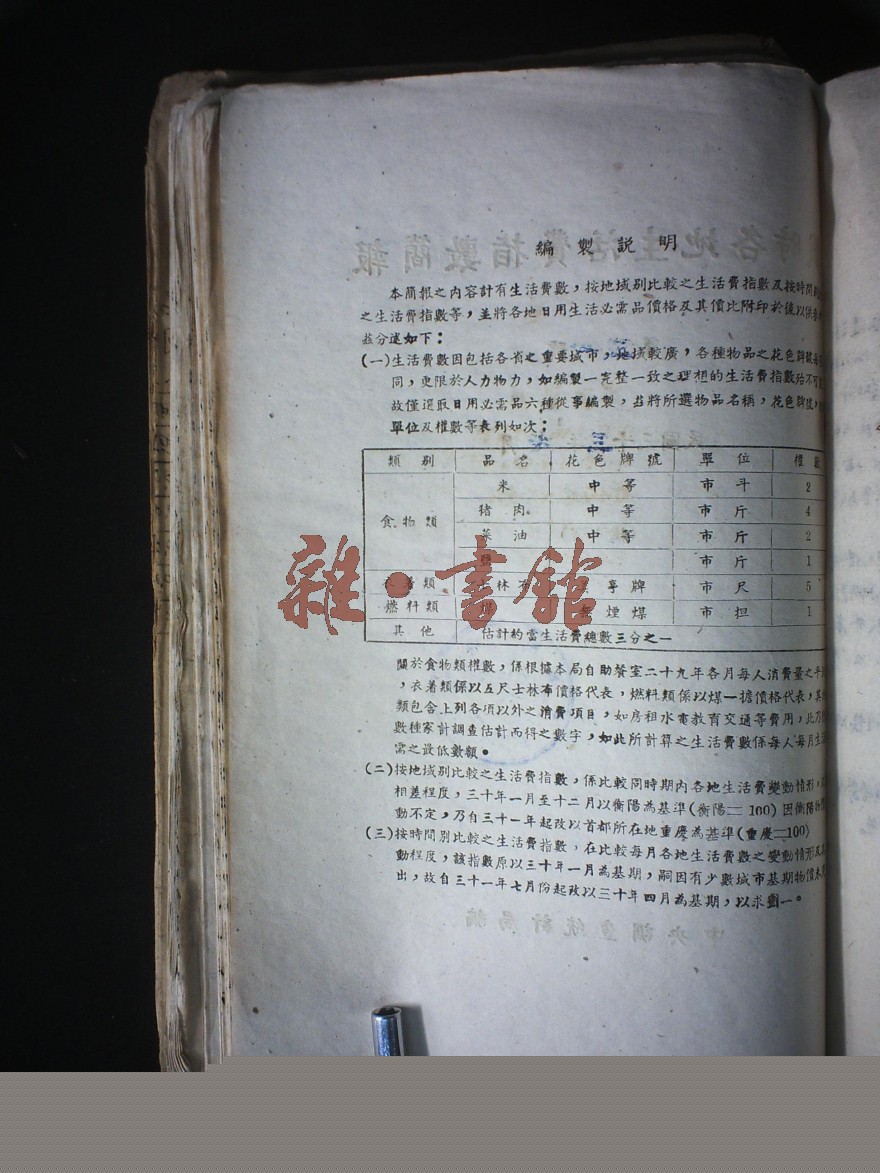 編製説明
本簡報之內容計有生活費數，按地域別比較之生活費指數及按時間
之生活費指數等，並將各地日用生活必需品價格及其價比附印於後以供
茲分述如下：
(一)生活費數因包括各省之重要城市，地域較廣，各種物品之花色牌號
同，更限於人力物力，如編製一完整一致之理想的生活費指數殆不可
故僅選取日用必需品六種從事編製，茲將所選物品名稱，花色牌號，
單位及權數等表列如次：
類別 品名 花色牌號 單位 權數
食物類 米 中等 市斗 2
猪肉 中等 市斤 4
菜油 中等 市斤 2
市斤 1
類 林 亭牌 市尺 5
燃料類 煙煤 市担 1
其他 估計約當生活費總數三分之一
關於食物類權數，係根據本局自助餐室二十九年各月每人消費量之平
，衣着類係以五尺士林布價格代表，燃料類係以煤一擔價格代表，其
類包含上列各項以外之消費項目，如房租水電教育交通等費用，此乃
數種家計調查估計而得之數字，如此所計算之生活費數係每人每月生
需之最低數額。
(二)按地域別比較之生活費指數，係比較同時期內各地生活費變動情形，
相差程度，三十年一月至十二月以衡陽為基準(衡陽＝100)因衡陽物
動不定，乃自三十一年起改以首都所在地重慶為基準(重慶＝100)
(三)按時間別比較之生活費指數，在比較每月各地生活費數之變動情形及
動程度，該指數原以三十年一月為基期，嗣因有少數城市基期物價未
出，故自三十一年七月份起改以三十年四月為基期，以求劃一。
雜·書館